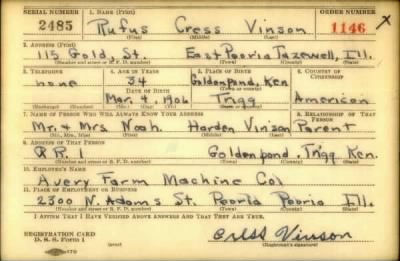 SERIAL NUMBER 1. NAME (Print) ORDER NUMBER
2485 Rufus Cress Vinson 1146 X
(First) (Middle) (Last)
2. ADDRESS (Print)
115 Gold, St. East Peoria Tazewell, Ill.
(Number and street or R. F. D. number) (Town) (County) (State)
3. TELEPHONE 4. AGE IN YEARS 5. PLACE OF BIRTH 6. COUNTRY OF CITIZENSHIP
none 34 Goldenpond, Ken
DATE OF BIRTH (Town or county)
Mar. 4, 1906 Trigg American
(Exchange) (Number) (Mo.) (Day) (Yr.) (State or country)
7. NAME OF PERSON WHO WILL ALWAYS KNOW YOUR ADDRESS 8. RELATIONSHIP OF THAT PERSON
Mr. & Mrs Noah. Harden Vinson Parent
(Mr., Mrs., Miss) (First) (Middle) (Last)
9. ADDRESS OF THAT PERSON
RR. 1 Goldenpond. Trigg Ken.
(Number and street or R. F. D. number) (Town) (County) (State)
10. EMPLOYER'S NAME
Avery Farm Machine Co
11. PLACE OF EMPLOYMENT OR BUSINESS
2300 N. Adams St. Peoria Peoria Ill.
(Number and street or R. F. D. number) (Town) (County) (State)
I AFFIRM THAT I HAVE VERIFIED ABOVE ANSWERS AND THAT THEY ARE TRUE.
REGISTRATION CARD
D. S. S. Form 1 (over) Cress Vinson
(Registrant's signature)